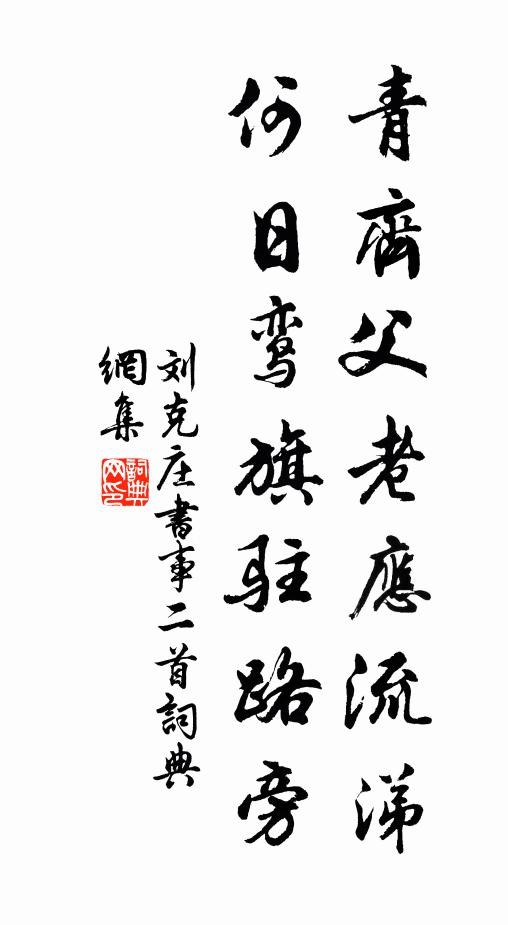 青齊父老應流涕
何日鸾旗駐路旁
刘克庄書事二首詞典
網集
詞典網印